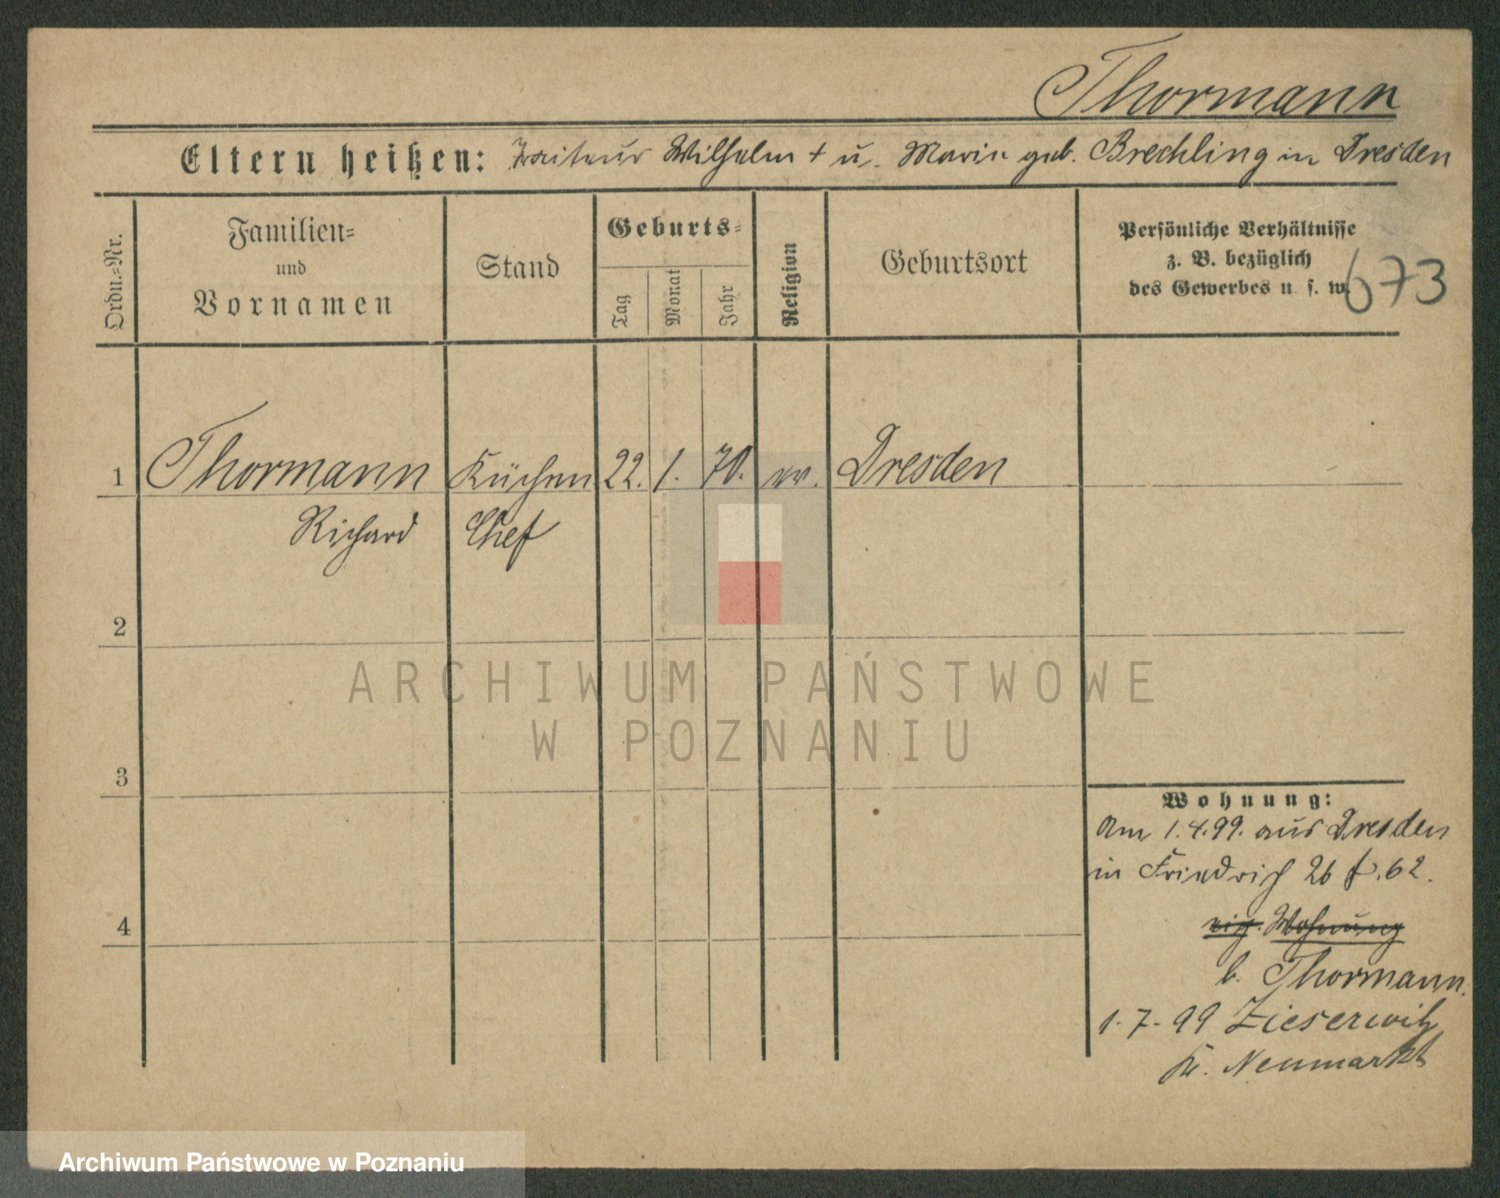 Thormann
Eltern heißen: Traiteur Wilhelm † u. Marie geb. Brechling in Dresden
Ordn.-Nr.
Familien-
und
Vornamen
Stand
Geburts-
Tag
Monat
Jahr
Religion
Geburtsort
Persönliche Verhältnisse
z. B. bezüglich
des Gewerbes u. s. w.
673
1 Thormann Küchen 22. 1. 70. ev. Dresden
Richard Chef
2
3
4
Wohnung:
Am 1.4.99. aus Dresden
in Friedrich 26 f. 62.
eig. Wohnung
b. Thormann.
1.7.99 Zieserwitz
Kr. Neumarkt
ARCHIWUM PAŃSTWOWE
W POZNANIU
Archiwum Państwowe w Poznaniu